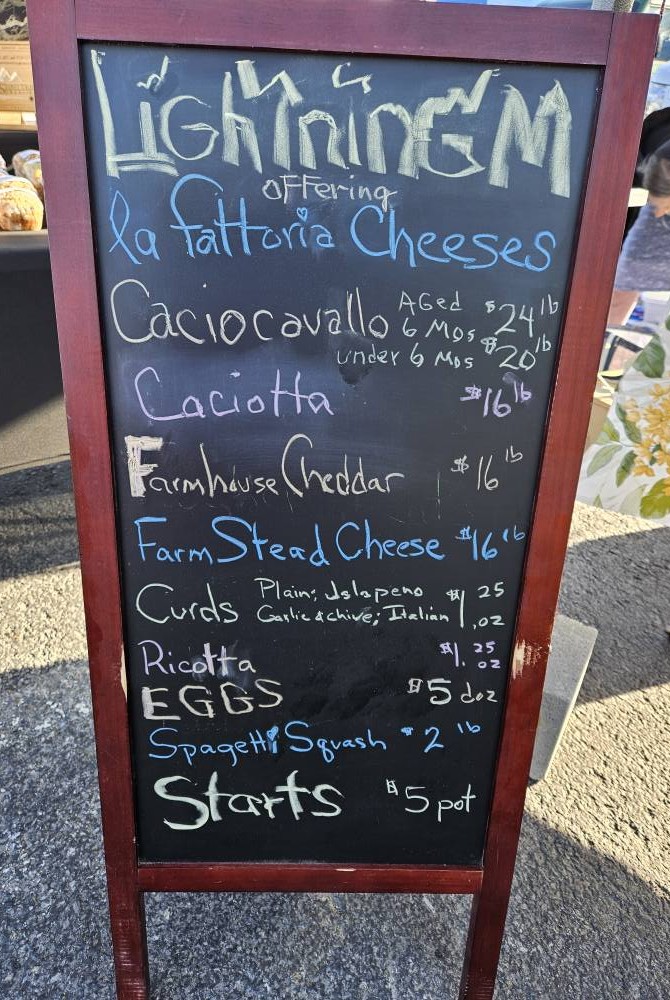 LighTninG M
offering
la fattoria Cheeses
Caciocavallo Aged 6 Mos $24 lb
under 6 Mos $20 lb
Caciotta $16 lb
Farmhouse Cheddar $16 lb
Farm Stead Cheese $16 lb
Curds Plain; Jalapeno $1.25 oz
Garlic & chive; Italian
Ricotta $1.25 oz
EGGS $5 doz
Spagetti Squash $2 lb
Starts $5 pot